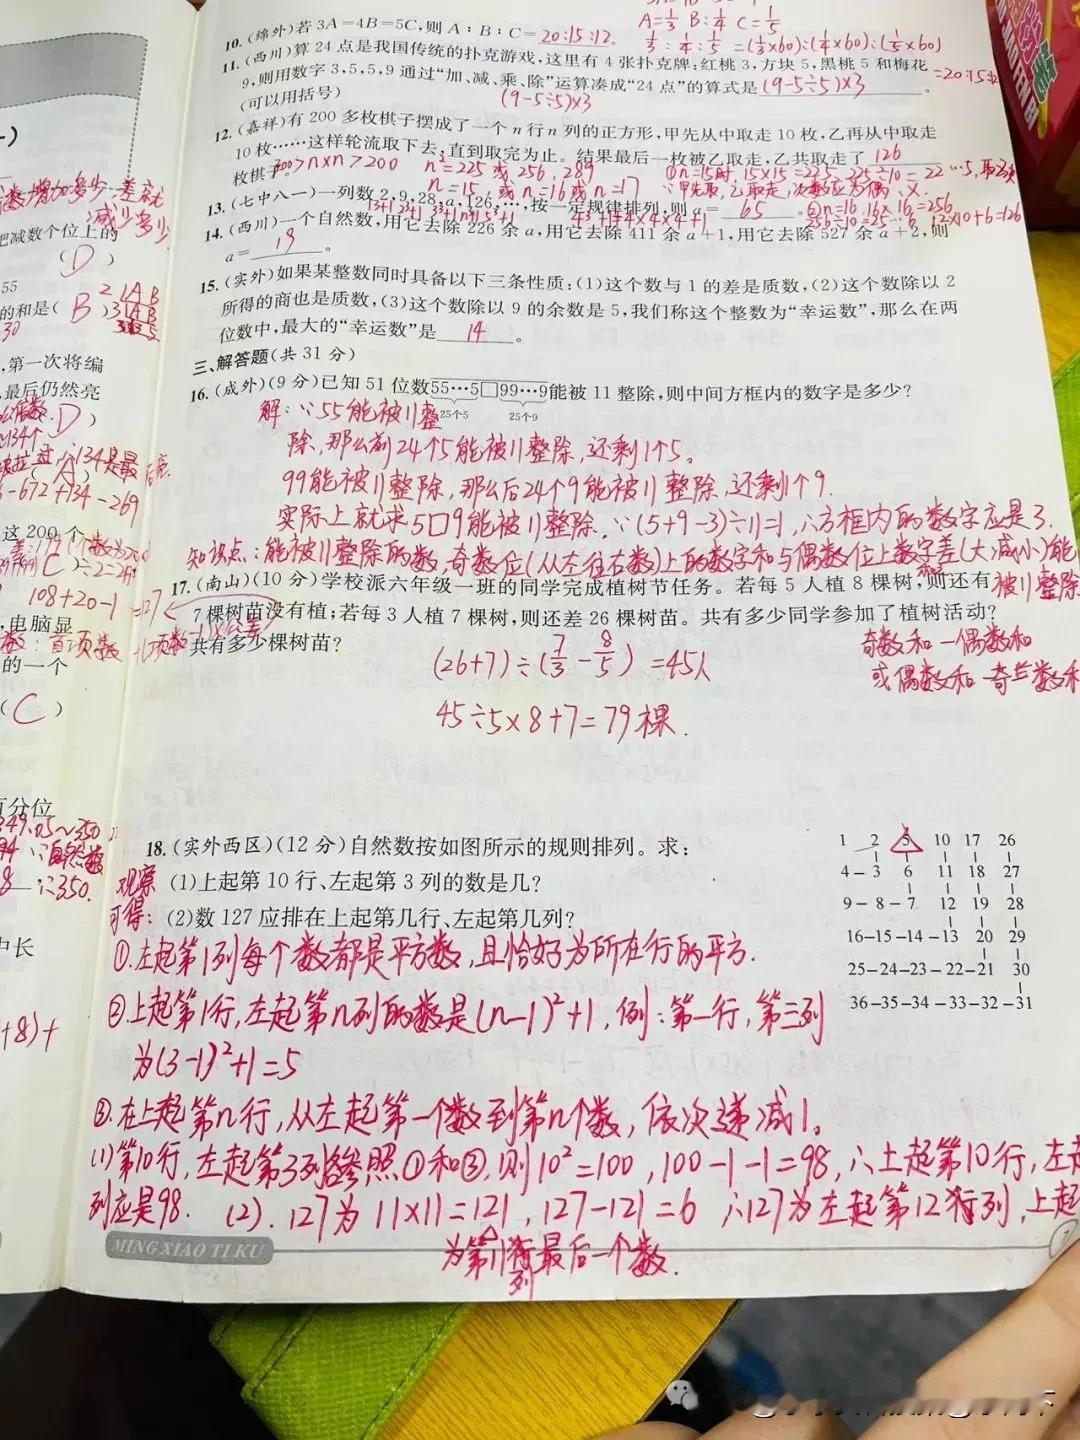 A=1/3 B=1/4 C=1/5
10.(绵外)若3A=4B=5C,则A:B:C=20:15:12。
1/3:1/4:1/5=(1/3×60):(1/4×60):(1/5×60)
=20:15:12
11.(西川)算24点是我国传统的扑克游戏,这里有4张扑克牌:红桃3,方块5,黑桃5和梅花
9,则用数字3,5,5,9通过“加、减、乘、除”运算凑成“24点”的算式是(9-5÷5)×3。
(可以用括号)
(9-5÷5)×3
12.(嘉祥)有200多枚棋子摆成了一个n行n列的正方形,甲先从中取走10枚,乙再从中取走
10枚……这样轮流取下去,直到取完为止。结果最后一枚被乙取走,乙共取走了126
枚棋子。
300>n×n>200 n²=225或256,289
n=15或n=16或n=17
①n=15时,15×15=225,225÷10=22…5,
13.(七中八一)一列数2,9,28,a,126,…,按一定规律排列,则a=65。
②n=16,16×16=256
12×10+6=126
14.(西川)一个自然数,用它去除226余a,用它去除411余a+1,用它去除527余a+2,则
a=19。
15.(实外)如果某整数同时具备以下三条性质:(1)这个数与1的差是质数,(2)这个数除以2
所得的商也是质数,(3)这个数除以9的余数是5,我们称这个整数为“幸运数”,那么在两
位数中,最大的“幸运数”是14。
三、解答题(共31分)
16.(成外)(9分)已知51位数55…5□99…9能被11整除,则中间方框内的数字是多少?
25个5 25个9
解:∵55能被11整
除,那么前24个5能被11整除,还剩1个5。
99能被11整除,那么后24个9能被11整除,还剩1个9.
实际上就求5□9能被11整除.∵(5+9-3)÷11=1,∴方框内的数字应是3.
知识点:能被11整除的数,奇数位(从左往右数)上的数字和与偶数位上数字差(大减小)能
被11整除
17.(南山)(10分)学校派六年级一班的同学完成植树节任务。若每5人植8棵树,则还有
7棵树苗没有植;若每3人植7棵树,则还差26棵树苗。共有多少同学参加了植树活动?
共有多少棵树苗?
奇数和-偶数和
或偶数和-奇
(26+7)÷(7/3-8/5)=45人
45÷5×8+7=79棵.
18.(实外西区)(12分)自然数按如图所示的规则排列。求:
(1)上起第10行、左起第3列的数是几?
(2)数127应排在上起第几行、左起第几列?
1 2 5 10 17 26
4-3 6 11 18 27
9-8-7 12 19 28
16-15-14-13 20 29
25-24-23-22-21 30
36-35-34-33-32-31
观察
可得:
①.左起第1列每个数都是平方数,且恰好为所在行的平方.
②上起第1行,左起第n列的数是(n-1)²+1,例:第一行,第三列
为(3-1)²+1=5
③.在上起第n行,从左起第一个数到第n个数,依次递减1。
(1)第10行,左起第3列参照①和③,则10²=100,100-1-1=98,∴上起第10行,左起
列应是98.(2).127为11×11=121,127-121=6∴127为左起第12列,上起
为第11行最后一个数.
MING XIAO TI KU
7
把减数个位上的
(D)
的和是(B)
,第一次将编
,最后仍然亮
D)
-672+134-269
这200个
C
108+20-1=127
,电脑显
的一个
(C)
百分位
∴350.
中长
+8)+